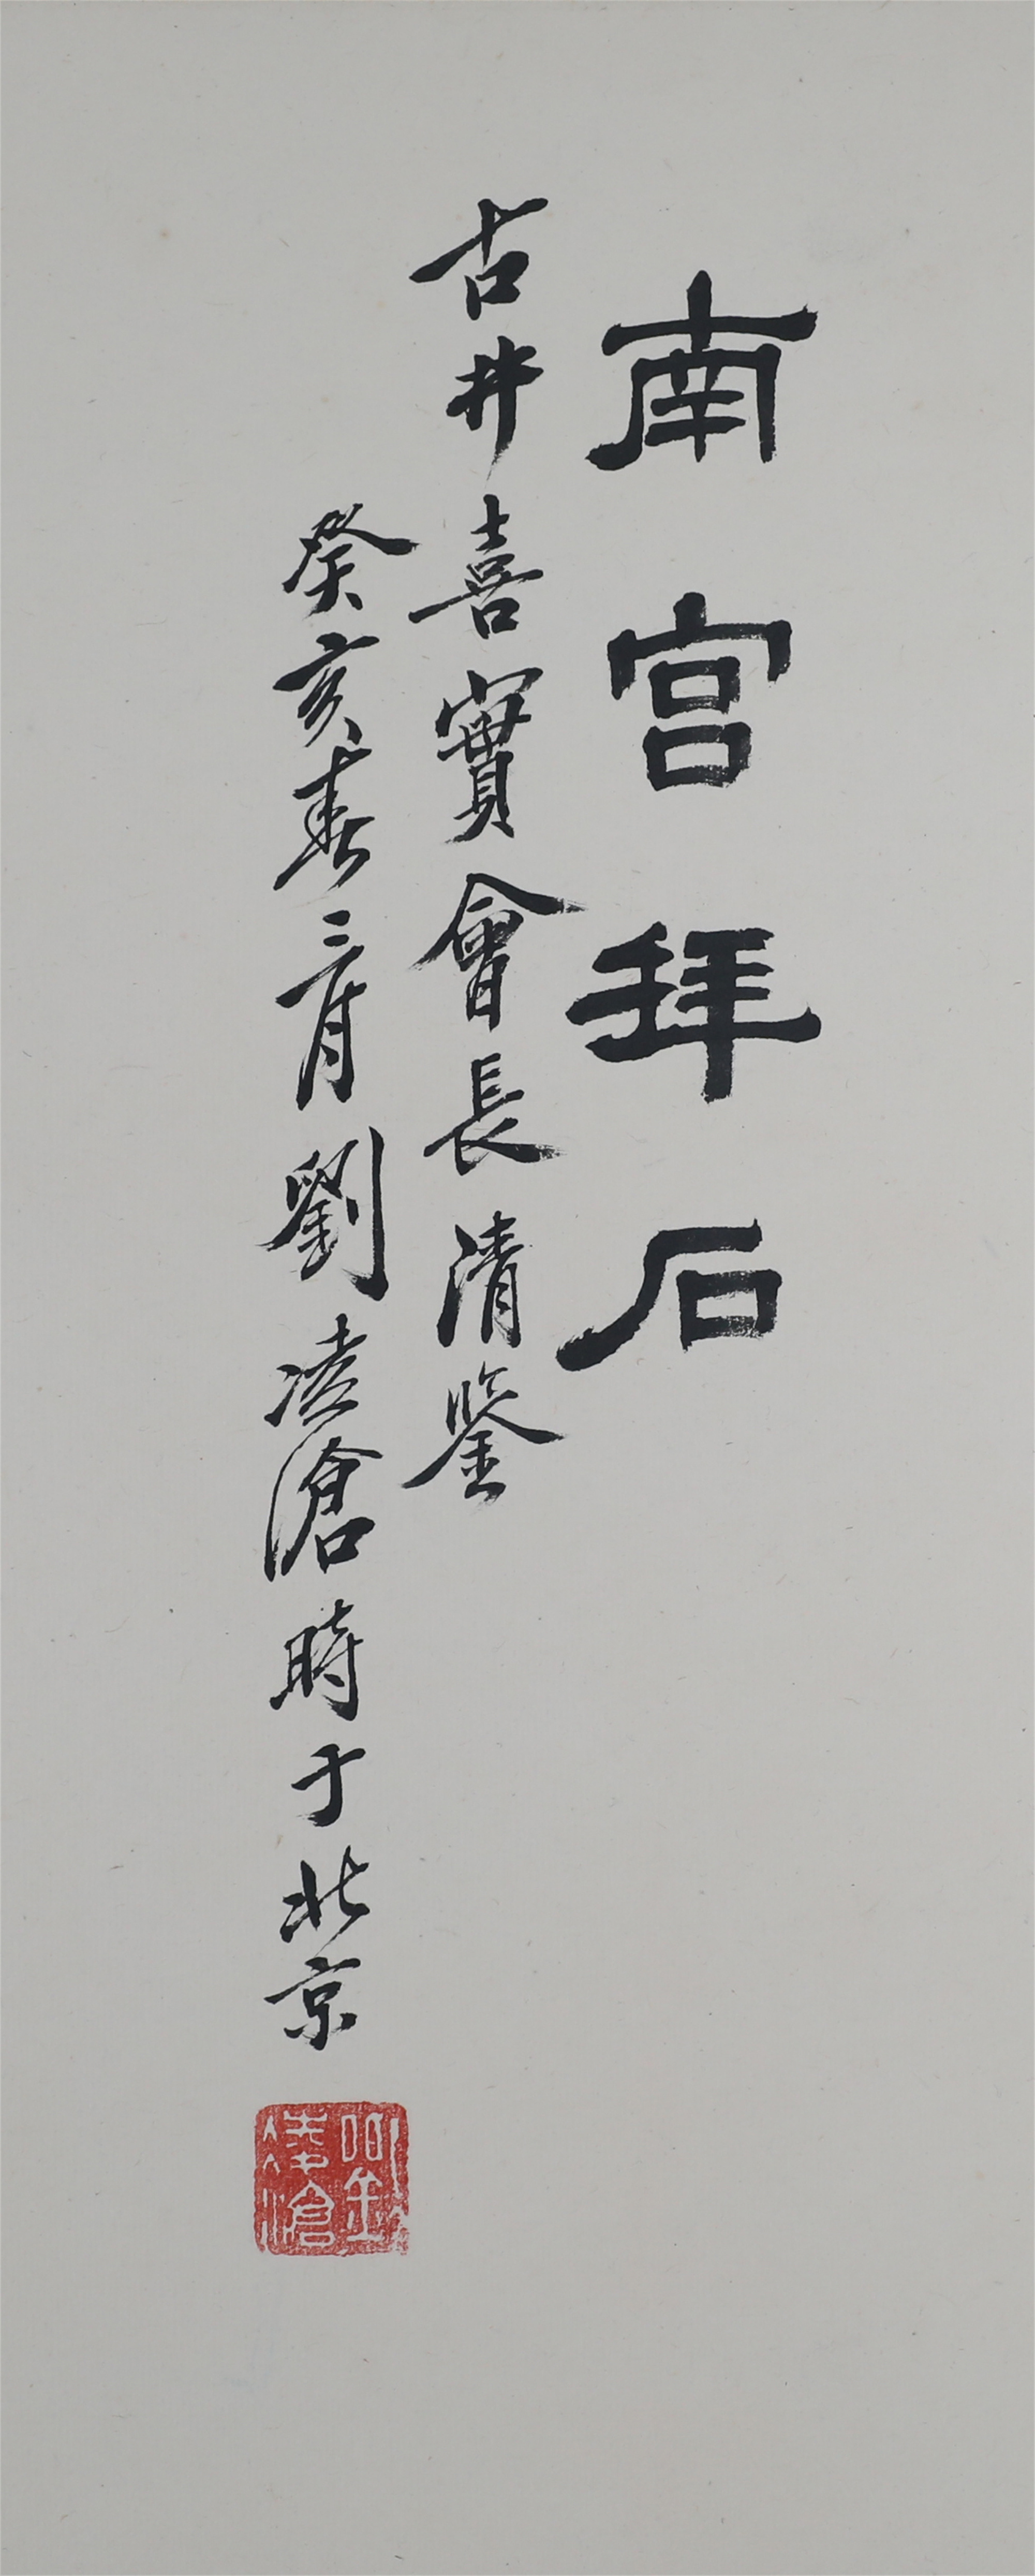 南宫拜石
古井喜實會長清鑒
癸亥春三月劉凌滄時于北京
劉凌滄